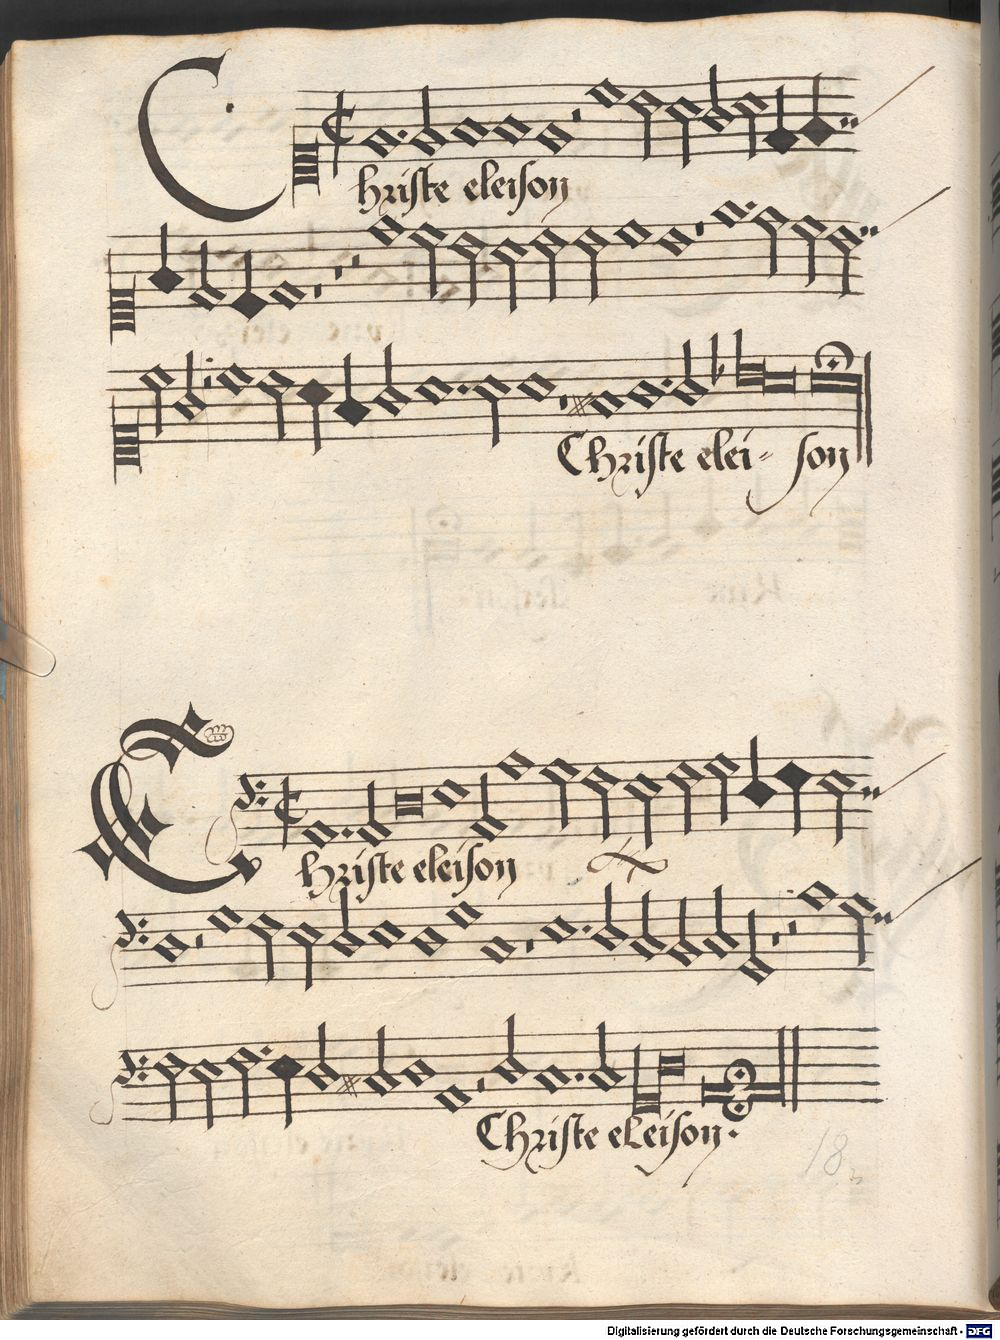 Christe eleison
Christe elei- son
Christe eleison
Christe eleison.
18
Digitalisierung gefördert durch die Deutsche Forschungsgemeinschaft - DFG